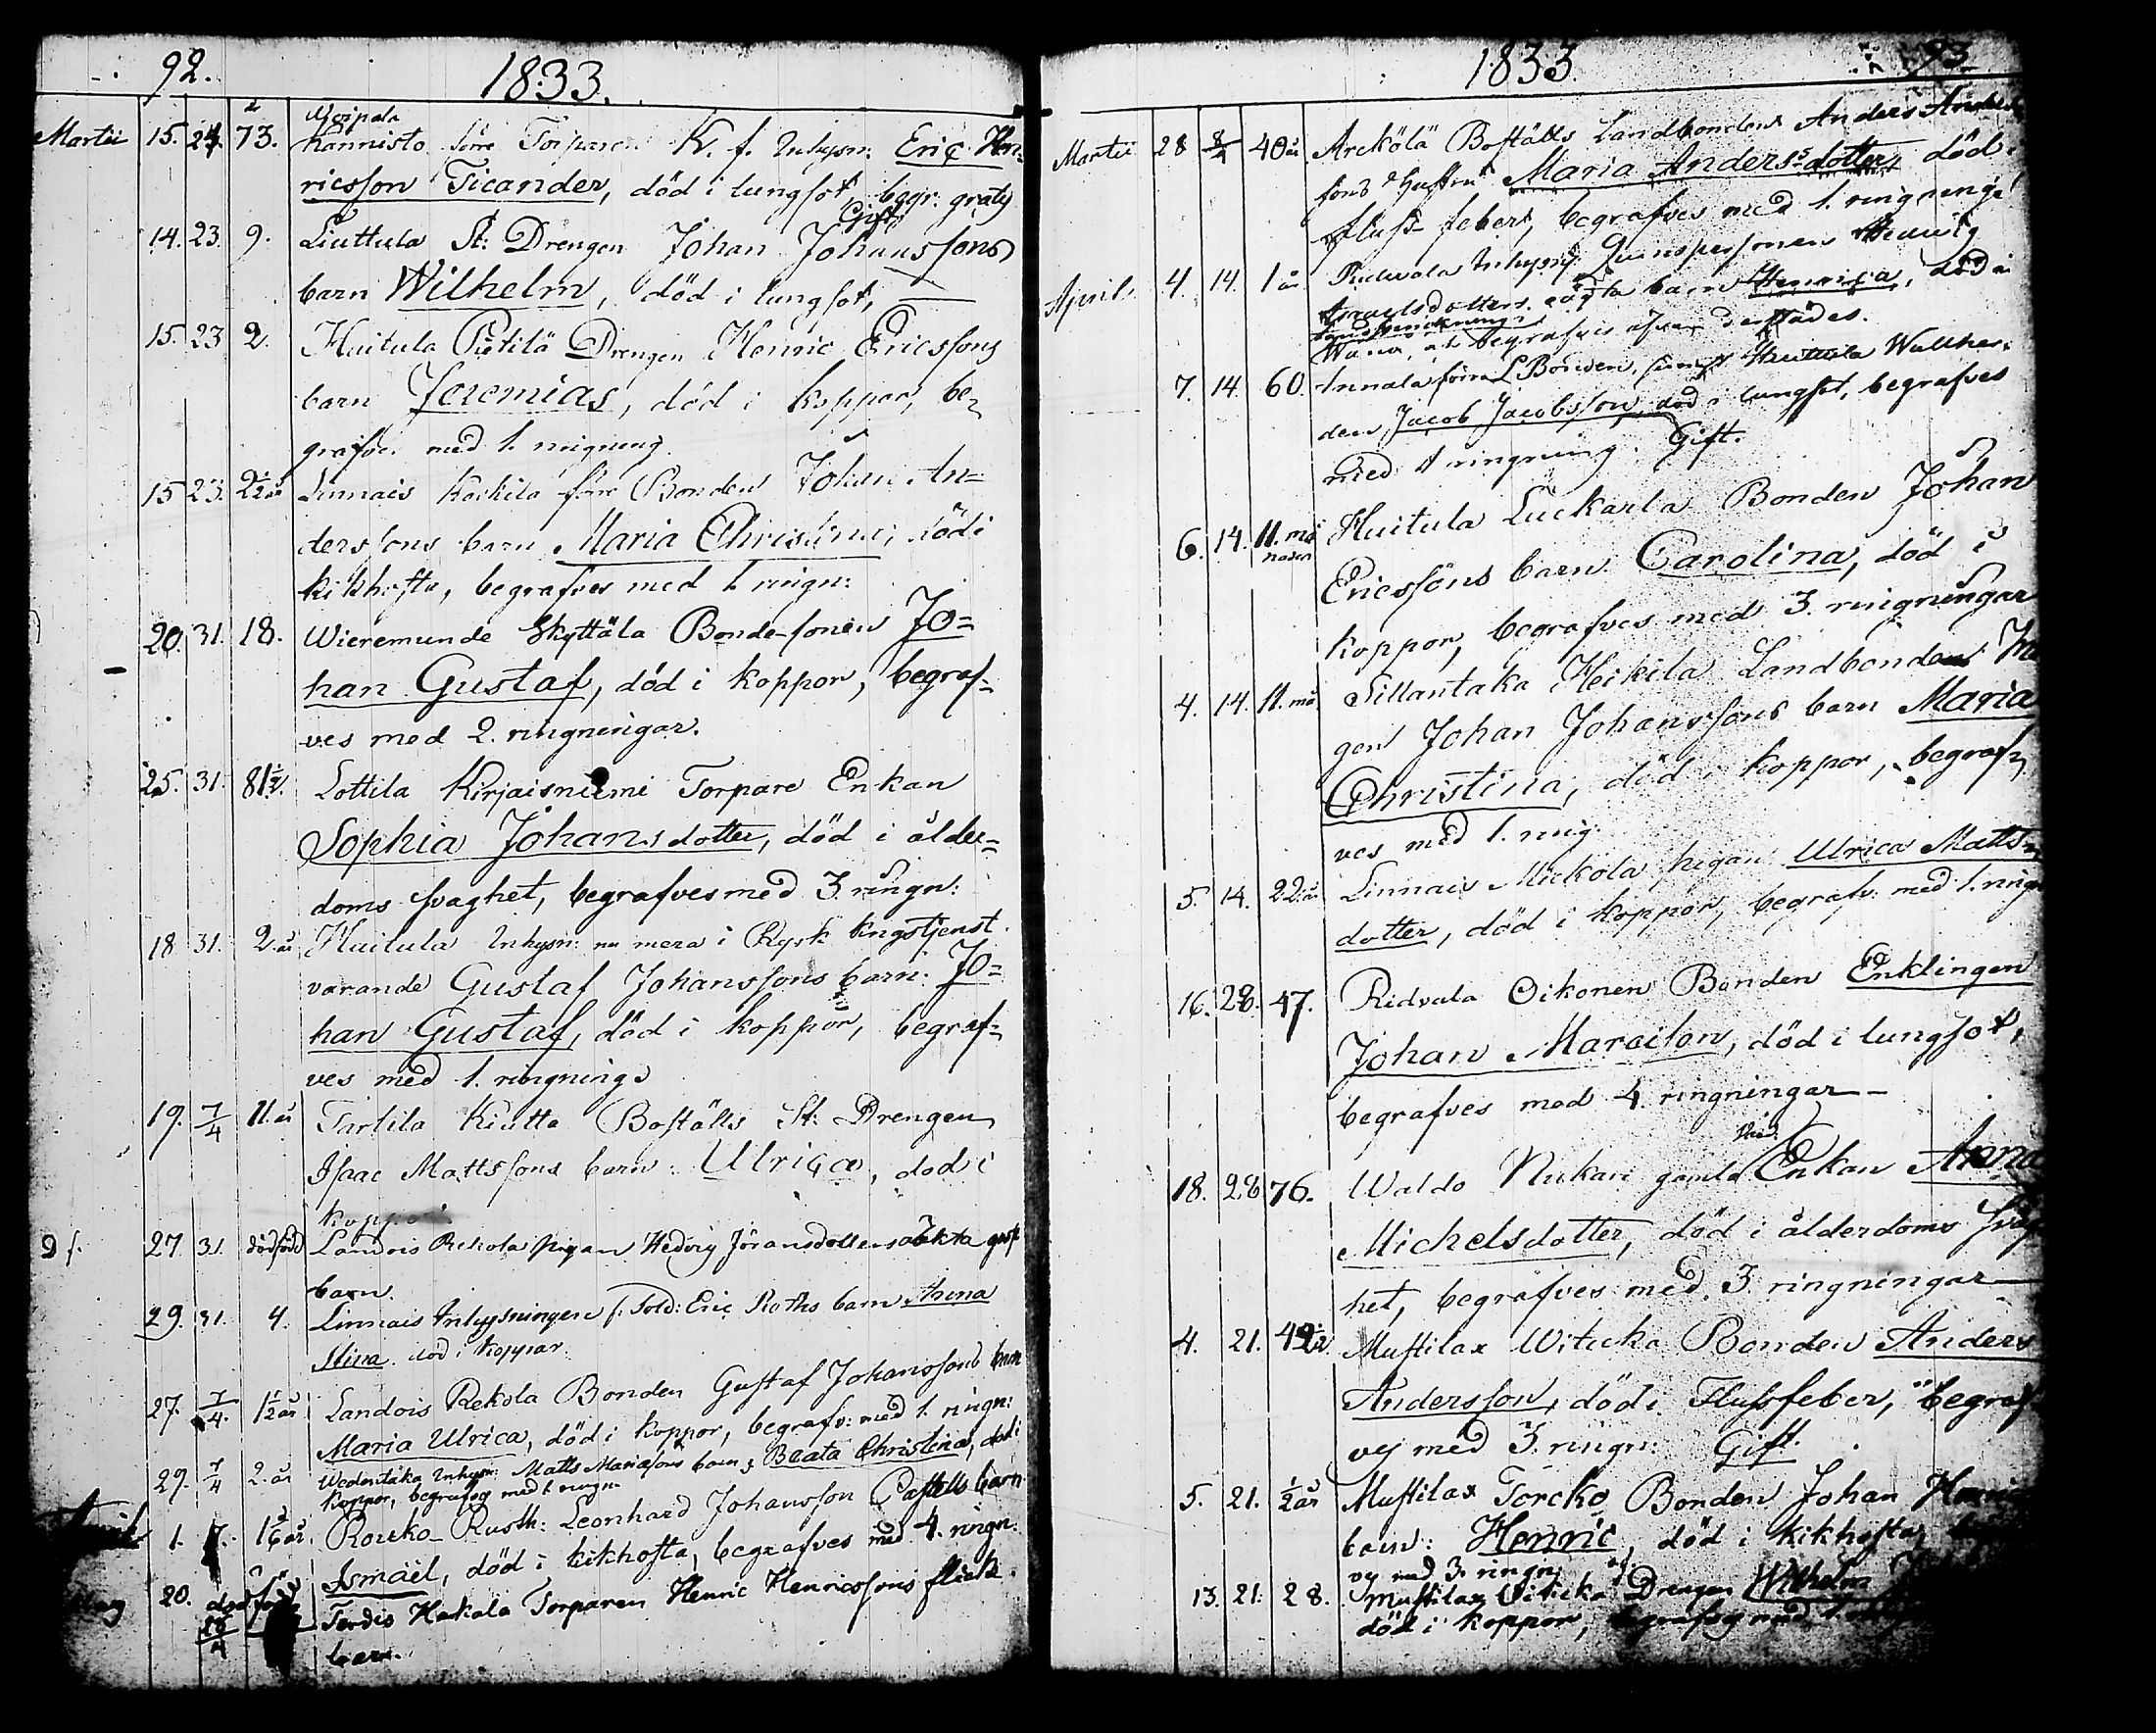 92.
1833.
Martii 15. 24. 73. Kannisto förre Torparen K. f. Inhysn: Eric Hen=
ricsson Ticander, död i lungsot, begr: gratis
Gift
14. 23. 9. Liuttula St: Drengen Johan Johanssons
barn Wilhelm, död i lungsot,
15. 23 2. Huitula Pietilä Drengen Henric Ericssons
barn Jeremias, död i koppor, be=
grafves med 1. ringning
15 23. 2 1/2 år Linnais Kockila förre Bonden Johan An=
derssons barn Maria Christina, död i
kikhosta, begrafves med 1 ringn:
20. 31. 18. Wieremunde Skyttälä Bonde-sonen Jo=
han Gustaf, död i koppor, begraf=
ves med 2. ringningar.
25. 31. 81 1/2. Lottila Kirjaisniemi Torpare Enkan
Sophia Johansdotter, död i ålder=
doms svaghet, begrafves med 3. ringn:
18 31. 2 år Huitula Inhysn: nu mera i Rysk krigstjenst
varande Gustaf Johanssons barn: Jo=
han Gustaf, död i koppor, begraf=
ves med 1. ringning
19. 7/4 11. år Tarttila Kiutta Boställs St: Drengen
Isaac Mattssons barn: Ulrica, död i
koppor.
27. 31. dödfödd Landois Rekola pigan Hedvig Jöransdotters oäkta
barn.
29. 31. 4. Linnais Inhysningen f. Sold: Eric Roths barn Anna
Stina död i koppor
27. 7/4. 1 1/2 år Landois Rekola Bonden Gustaf Johanssons barn
Maria Ulrica, död i koppor, begrafv: med 1. ringn:
29. 7/4 2. år Wedentaka Inhysn: Matts Mariassons barn Beata Christina, död i
koppor, begrafves med 1 ringn
1. 7. Rouko Rusth: Leonhard Johansson Castells barn
Ismaël, död i kikhosta, begrafves med 4. ringn:
20. dödfödd 10/4 Terdis Hakala Torparen Henric Henricssons flick
barn.
1833.
93
Martii 28 8/4 40 år Arckölä Boställs Landbonden Anders Anders
sons Hustru Maria Andersdotter, död i
fluss-feber, begrafves med 1. ringning
April 4. 14. 1 år Inhysn: Qvinspersonen Hedvig
oägta barn Henrica, död i
Wånå, och begrafves äfven derstädes.
7. 14. 60. Annala förre L. Bonden, Huitula
den Jacob Jacobsson, död i lungsot, begrafves
med 1 ringning. Gift.
6. 14. 11. må
nader Huitula Luckarla Bonden Johan
Ericssons barn Carolina, död i
koppor, begrafves med 3. ringningar
4. 14. 11. må Sillantaka Heikila Landbonde
gen Johan Johanssons barn Maria
Christina, död i koppor, begraf=
ves med 1. ring
5. 14. 22. år Linnais Mickola pigan Ulrica Matts=
dotter, död i koppor, begrafv: med 1. ringn
16. 28. 47. Ridvala Oikonen Bonden Enklingen
Johan Marcilon, död i lungsot,
begrafves med 4. ringningar
18. 28 76. Waldo Nukari gamla Enkan Anna
Michelsdotter, död i ålderdoms svag
het, begrafves med 3 ringningar
4. 21. 49 1/2. Mustilax Witicka Bonden Anders
Andersson, död i Flussfeber, begraf
ves med 3. ringn: Gift.
5. 21. 1/2 år Mustilax Torcko Bonden Johan
barn: Henric, död i kikhosta,
ves med 3. ringn
13. 21. 28. Mustilax Witicka Drengen Wilhelm
död i koppor, begrafves med 1.